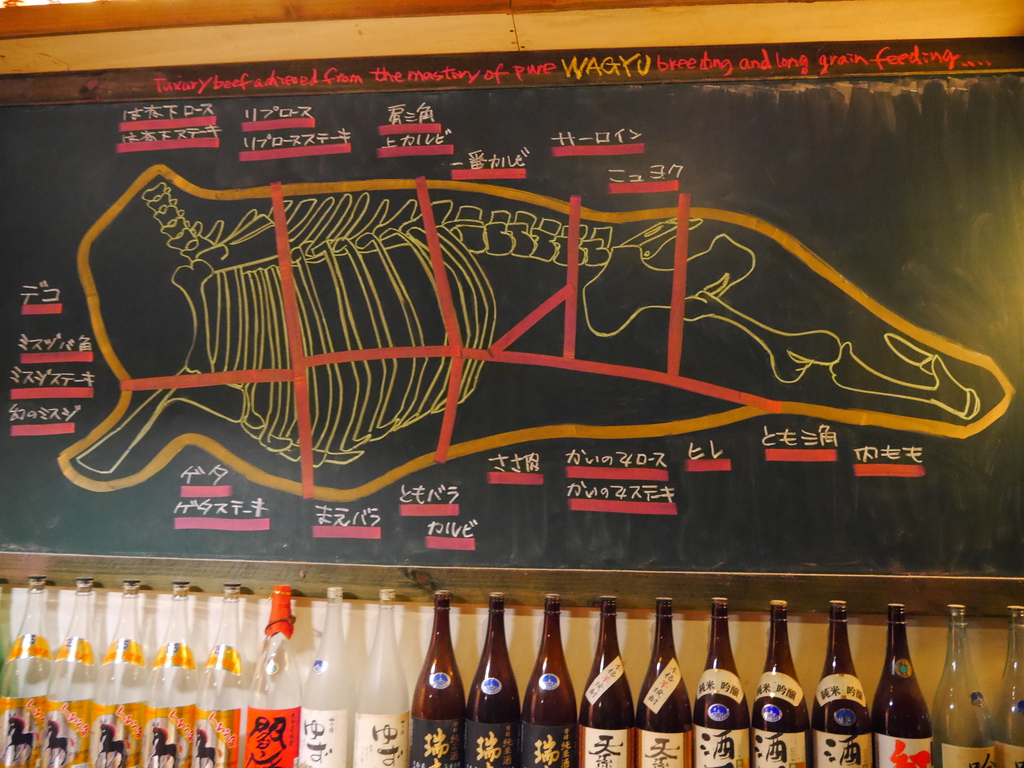 Luxury beef achieved from the mastery of pure WAGYU breeding and long grain feeding....
はネ下ロース
はネ下ステーキ
リブロース
リブロースステーキ
肩三角
上カルビ
一番カルビ
サーロイン
ニュヨク
デコ
ミスジステーキ
幻のミスジ
ゲタ
ゲタステーキ
まえバラ
ともバラ
カルビ
ささ肉
かいのみロース
かいのみステーキ
ヒレ
とも三角
内もも
ゆず
ゆず
瑞
瑞
瑞
純米 吟醸
純米 吟醸
純米 吟醸
酒
酒
酒
紅
吟